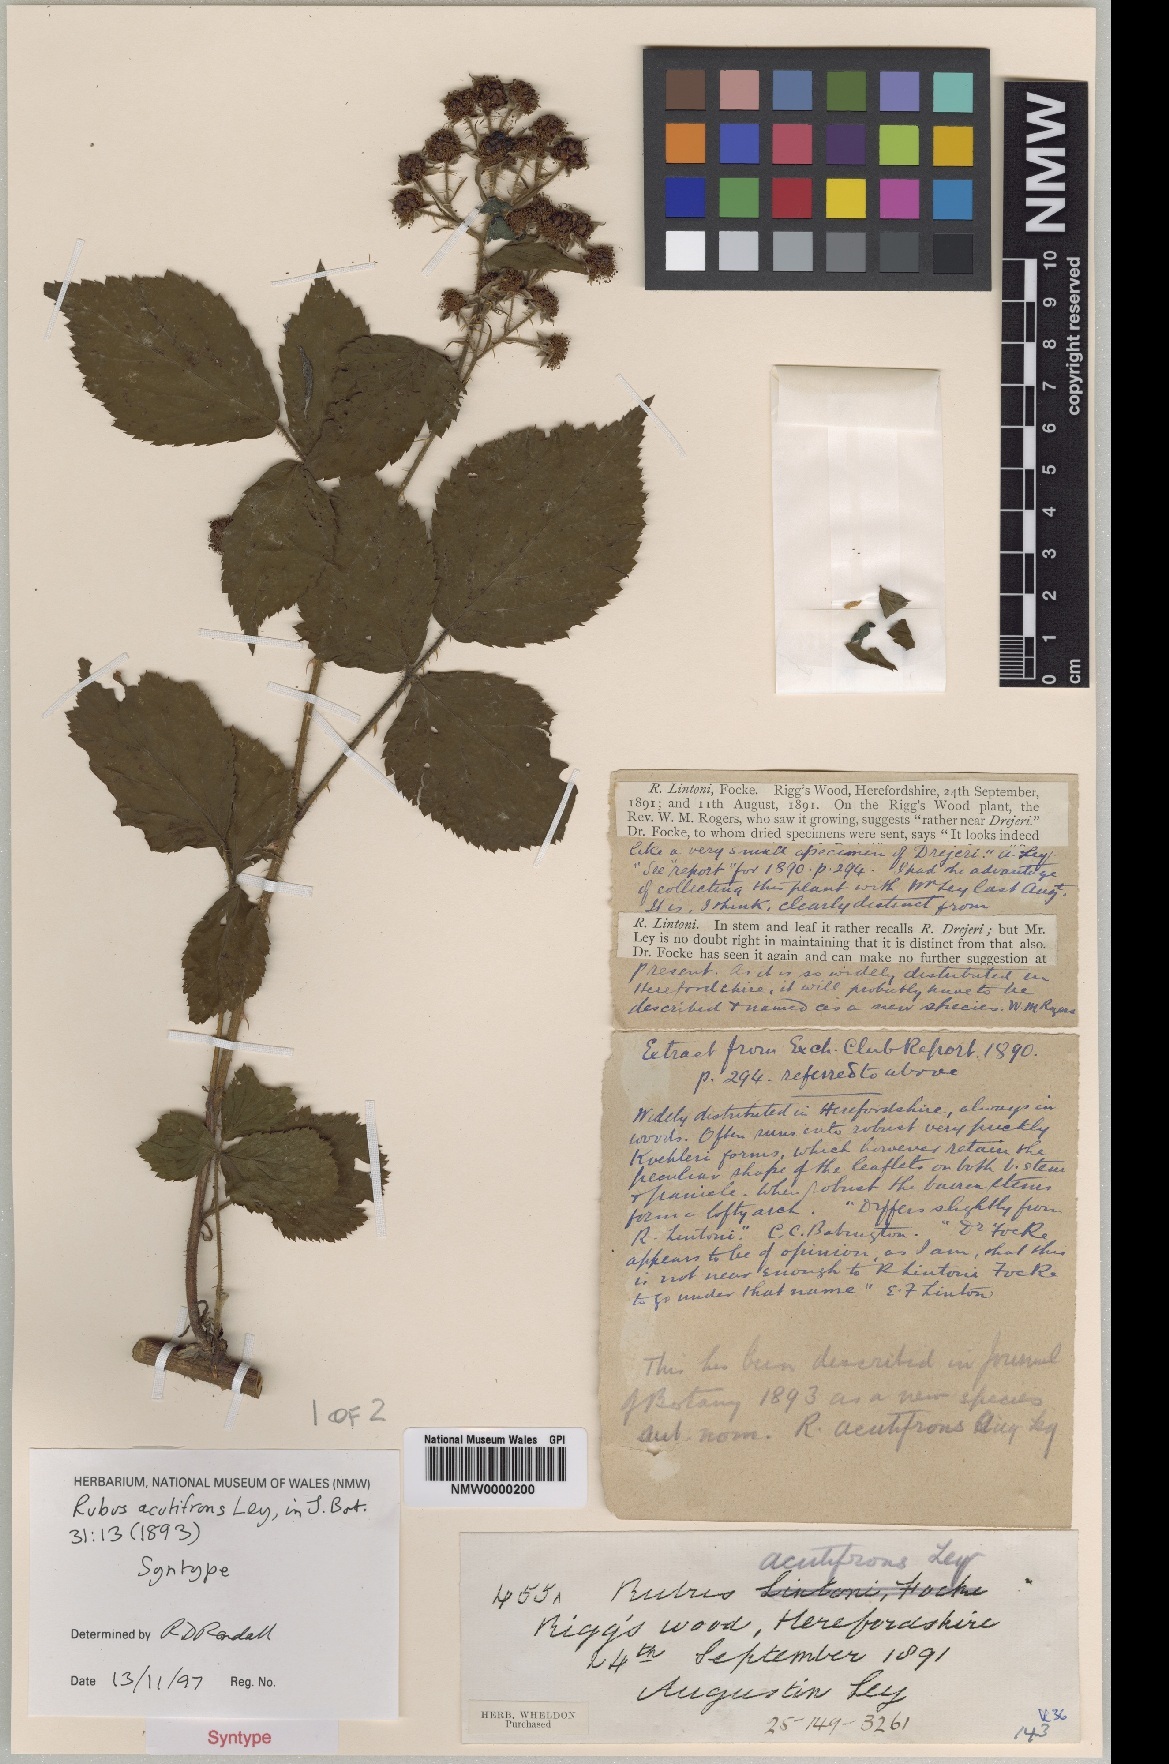 NMW
copyright reserved
10
9
8
7
6
5
4
3
2
1
0
cm
R. Lintoni, Focke. Rigg's Wood, Herefordshire, 24th September,
1891; and 11th August, 1891. On the Rigg's Wood plant, the
Rev. W. M. Rogers, who saw it growing, suggests "rather near Drejeri."
Dr. Focke, to whom dried specimens were sent, says "It looks indeed
like a very small specimen of Drejeri." A Ley.
"See "report" for 1890. p. 294. I had the advantage
of collecting this plant with Mr Ley last Augt.
It is, I think, clearly distinct from
R. Lintoni. In stem and leaf it rather recalls R. Drejeri; but Mr.
Ley is no doubt right in maintaining that it is distinct from that also.
Dr. Focke has seen it again and can make no further suggestion at
present. As it is so widely distributed in
Herefordshire, it will probably have to be
described & named as a new species. W M Rogers
Extract from Exch. Club Report. 1890.
p. 294. referred to above
Widely distributed in Herefordshire, always in
woods. Often runs into robust very prickly
Koehleri forms, which however retain the
peculiar shape of the leaflets on both b. stem
& panicle. When robust the barren stems
form a lofty arch. "Differs slightly from
R. Lintoni." C. C. Babington. "Dr Focke
appears to be of opinion, as I am, that this
is not near enough to R Lintoni Focke
to go under that name" E. F Linton
This has been described in Journal
of Botany 1893 as a new species
sub. nom. R. acutifrons Aug Ley
1 OF 2
National Museum Wales GPI
NMW0000200
HERBARIUM, NATIONAL MUSEUM OF WALES (NMW)
Rubus acutifrons Ley, in J. Bot.
31:13 (1893)
Syntype
Determined by R D Randall
Date 13/11/97 Reg. No.
Syntype
acutifrons Ley
455A Rubus Lintoni, Focke
Rigg's wood, Herefordshire
24th September 1891
Augustin Ley
HERB. WHELDON
Purchased
25-149-3261
V. 36
143